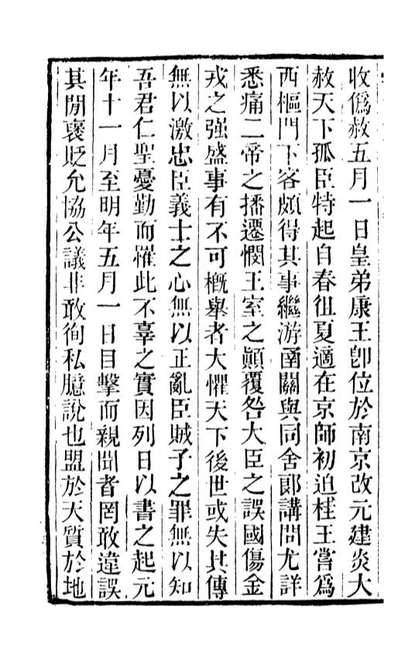 收僞赦五月一日皇弟康王卽位於南京改元建炎大
赦天下孤臣特起自春徂夏適在京師初迫枉王嘗爲
西樞門下客頗得其事繼游函關與同舍郎講問尤詳
悉痛二帝之播遷憫王室之顛覆咎大臣之誤國傷金
戎之强盛事有不可槪舉者大懼天下後世或失其傳
無以激忠臣義士之心無以正亂臣賊子之罪無以知
吾君仁聖憂勤而罹此不辜之實因列日以書之起元
年十一月至明年五月一日目擊而親聞者罔敢違誤
其閒襃貶允協公議非敢徇私臆說也盟於天質於地